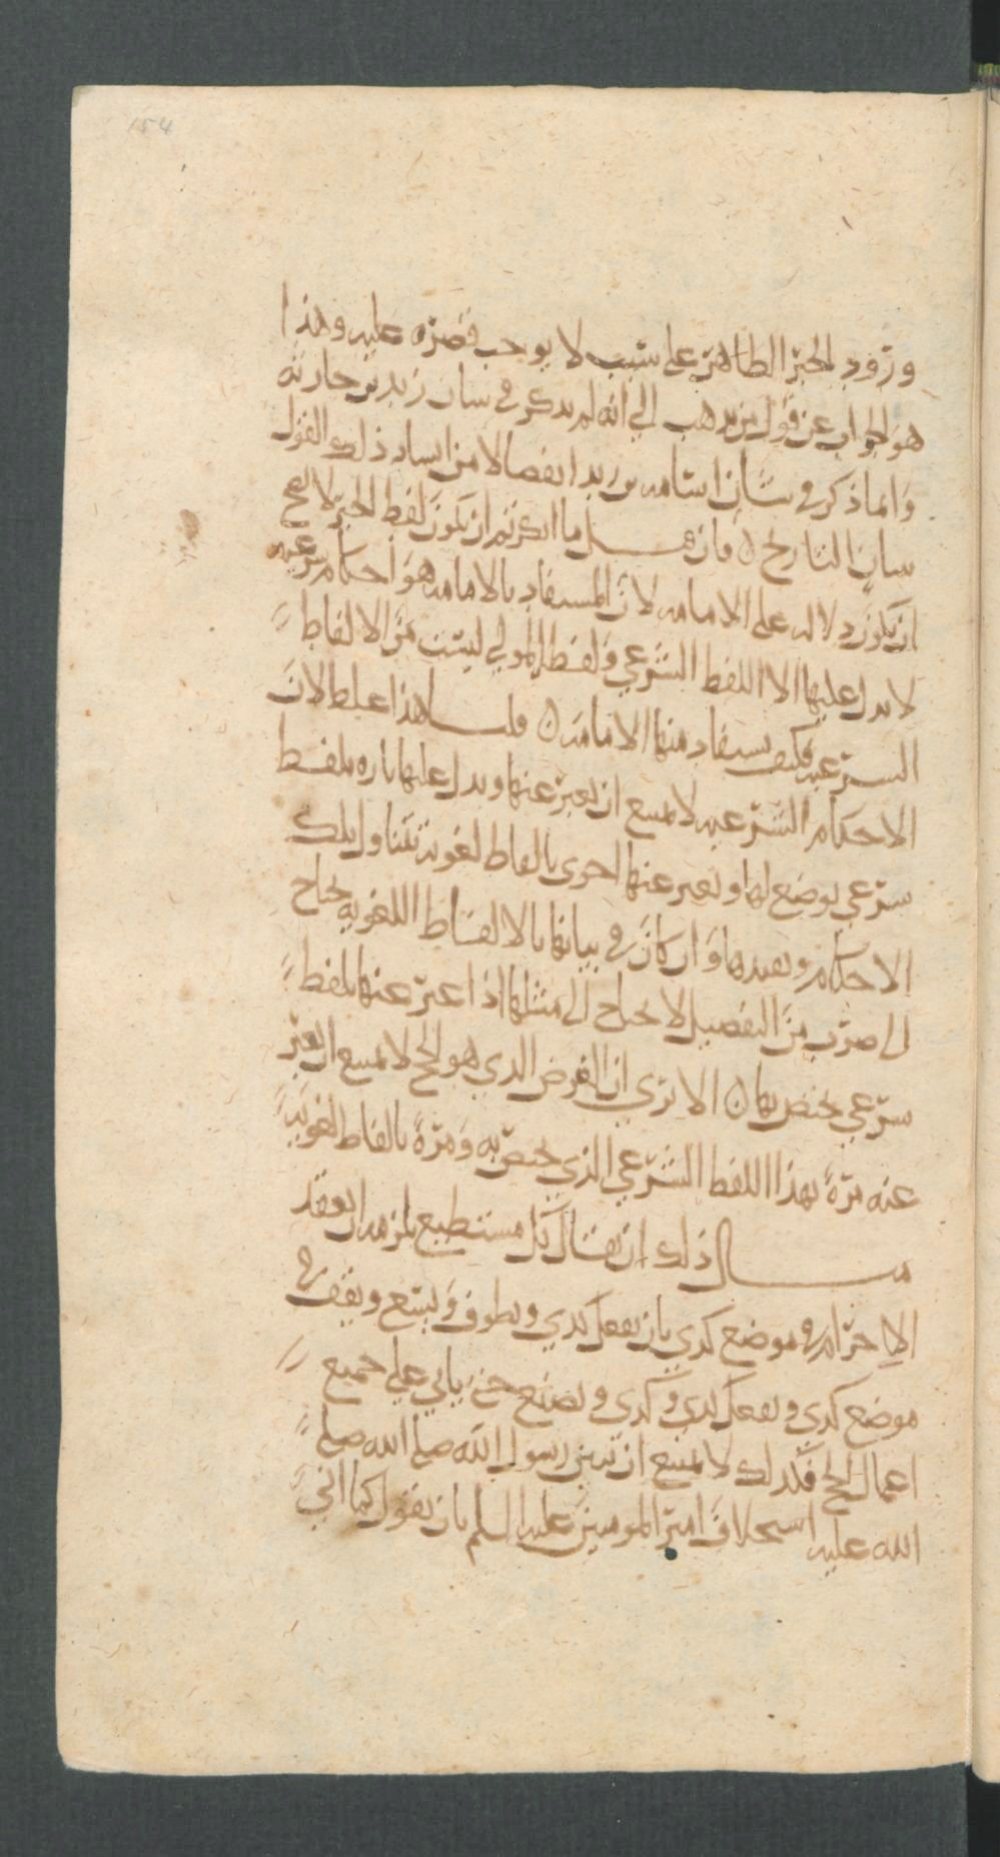 154
ورود الخبر الظاهر على سبب لا يوجب قصره عليه وهذا
هو الجواب عن قول من يذهب الي انه لم يذكر في شان زيد بن حارثه
وانما ذكر في شان اسامه بن زيد انفصالا من اساد ذلك القول
بيان التاريخ ن فان قيل ما انكرتم ان يكون لفظ الخبر لا يصح
ان يكون دلاله على الامامه لان المستفاد بالامامه هو احكام شرعيه
لا يدل عليها الا اللفظ الشرعي ولفظ المولي ليست من الالفاظ
الشرعيه فكيف يستفاد منها الامامه ن قلنا هذا غلط لان
الاحكام الشرعيه لا يمتنع ان يعبر عنها ويدل عليها تاره بلفظ
شرعي يوضع لها ويعبر عنها اخرى بالفاظ لغويه تتناول تلك
الاحكام وتفيدها وان كان في بيانها بالالفاظ اللغويه يحتاج
الى ضرب من التفصيل لا يحتاج الى مثلها اذا عبر عنها بلفظ
شرعي يختص بها ن الا تري ان الغرض الذي هو الحج لا يمتنع ان يعبر
عنه مرة بهذا اللفظ الشرعي الذي يختص به ومرة بالفاظ لغوية
مثال ذلك ان يقال كل مستطيع يلزمه ان يعقد
الاحرام في موضع كدي بان يفعل كدي ويطوف ويسع ويقف في
موضع كدى ويفعل كدي وكدى ويصنع حتى ياتي علي جميع
اعمال الحج فكدلك لا يمتنع ان يبين رسول الله صلى الله صلى
الله عليه استخلاف امير المومنين عليه السلم بان يقول كما انني